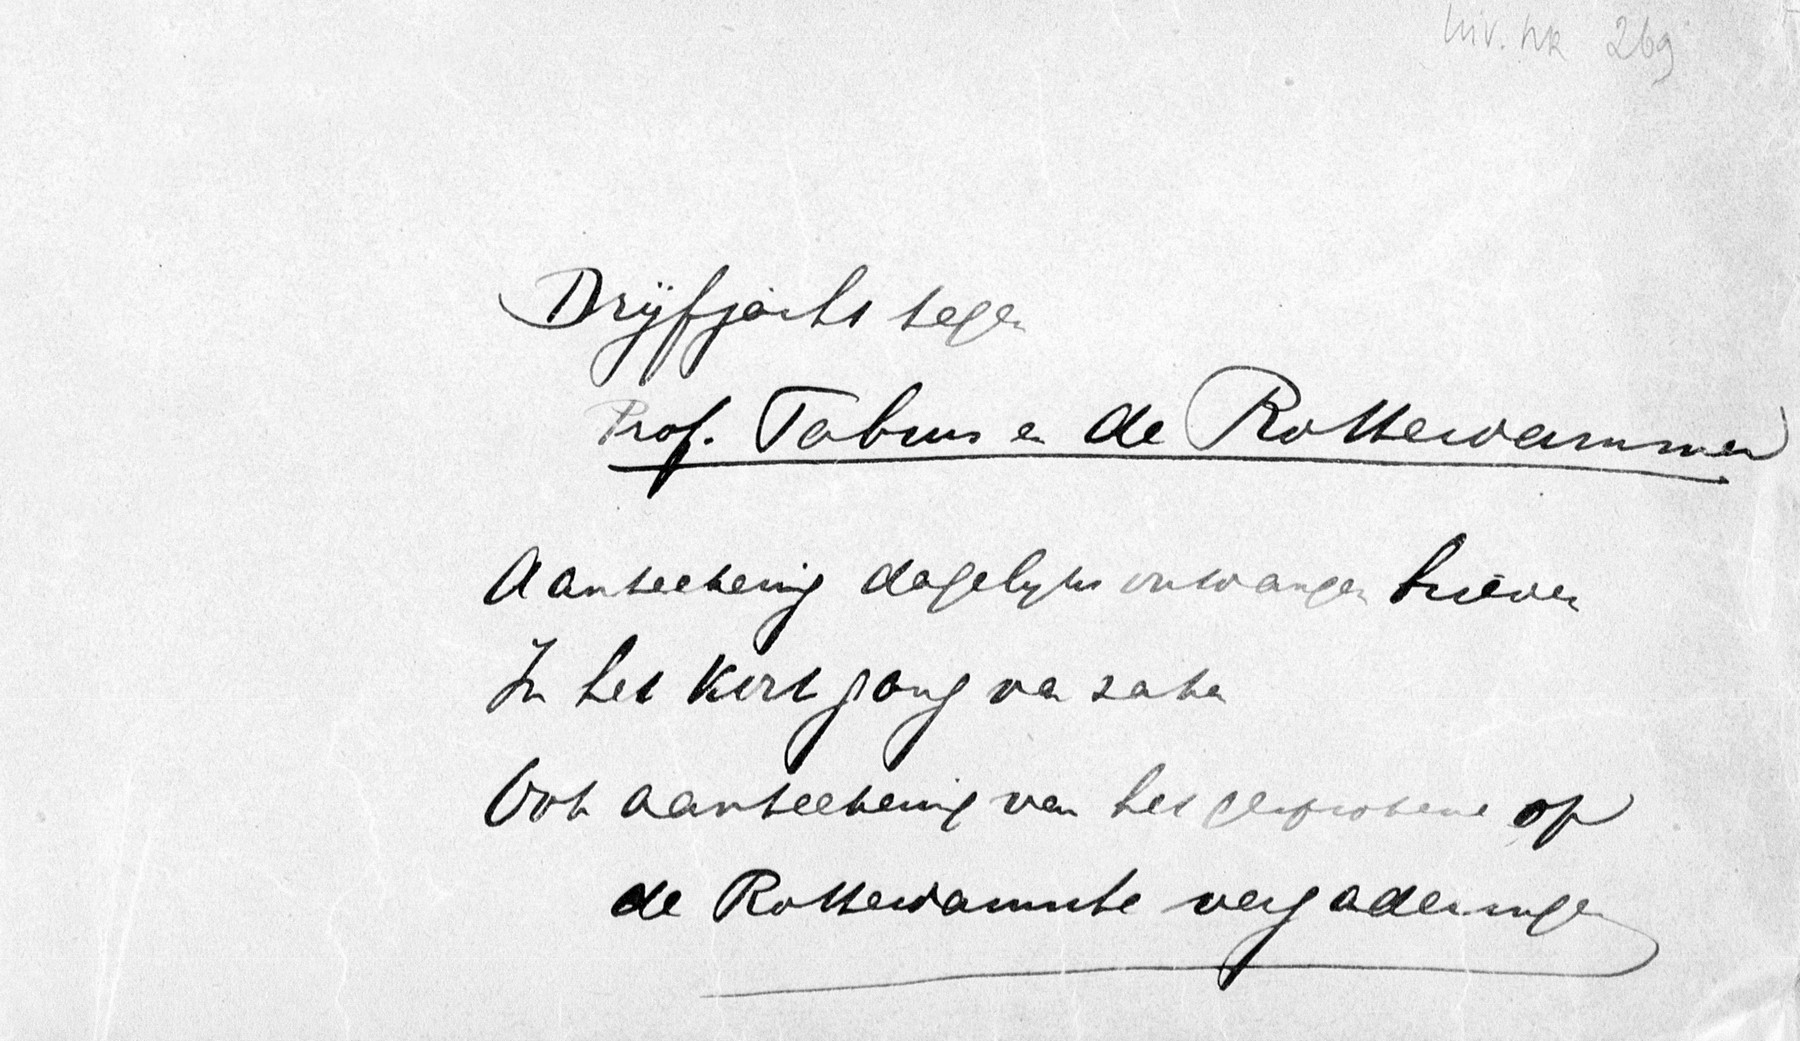 inv. nr 269
Drijfjacht tegen
Prof. Tabus en de Rottewammer
Aanteekening dagelijks ontvangen brieven
In het Kort gang van zaken
Ook aanteekening van het gesprokene op
de Rottewamsche vergaderingen